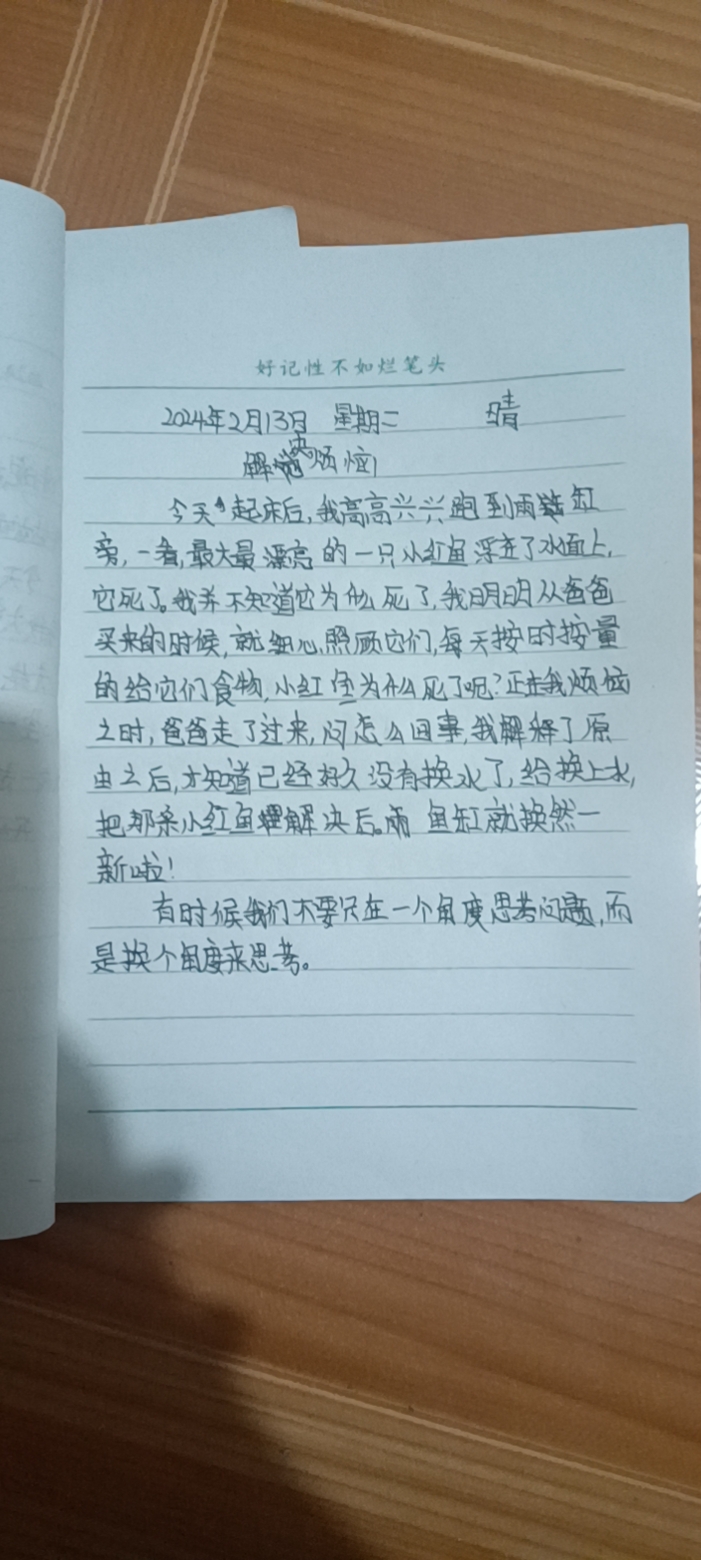 好记性不如烂笔头
2024年2月13日 星期二 晴
解决烦恼
今天起床后,我高高兴兴跑到雨缸
旁,一看,最大最漂亮的一只小红鱼浮在了水面上,
它死了。我并不知道它为什么死了,我明明从爸爸
买来的时候,就细心照顾它们,每天按时按量
的给它们食物,小红鱼为什么死了呢?正在我烦恼
之时,爸爸走了过来,问怎么回事,我解释了原
由之后,才知道已经好久没有换水了,给换上水,
把那条小红鱼解决后。鱼缸就换然一
新啦!
有时候我们不要只在一个角度思考问题,而
是换个角度来思考。